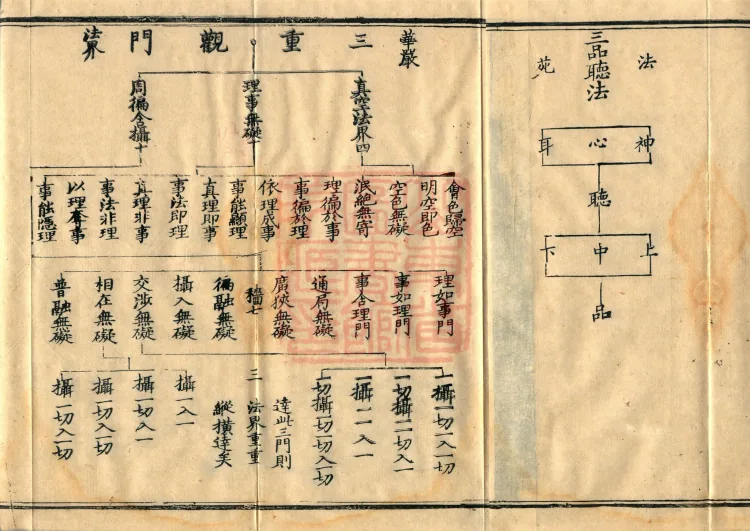 三品聽法
法 施
神 心 耳
聽
上 中 下
品
華嚴三重觀門法界
真空法界四
理事無礙十
周徧含攝十
會色歸空
明空即色
空色無礙
泯絕無寄
理徧於事
事徧於理
依理成事
事能顯理
真理即事
事法即理
真理非事
事法非理
以理奪事
事能隱理
理如事門
事如理門
事含理門
通局無礙
廣狹無礙
徧融無礙
攝入無礙
交涉無礙
相在無礙
普融無礙
一攝一切入一切
一切攝一切入一
一攝一入一
一切攝一切入一切
達此三門則
三法界重重
縱橫達矣
攝一入一
攝一切入一
攝一切入一切
攝一切入一切